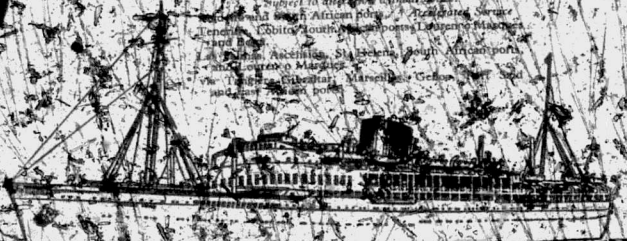 Subject to
and South African ports. Accelerated Service
Tenerife, Lobito, South African ports, Lourenço Marques
and Beira.
Las Palmas, Ascension, St. Helena, South African ports,
Lourenço Marques
Via Tangier, Gibraltar, Marseilles, Genoa, Port Said
and East African ports